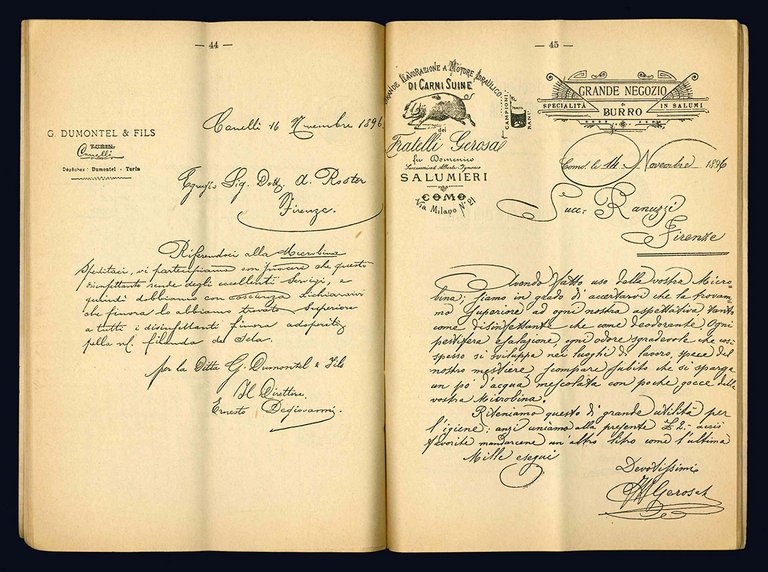 — 44 —
G. DUMONTEL & FILS
TURIN
Canelli
Dépêches: Dumontel - Turin
Canelli 16 Novembre 1896
Egregio Sig. Dott. A. Roster
Firenze.
Riferendoci alla Microbina
speditaci, vi partecipiamo con piacere che questo
disinfettante rende degli eccellenti servizi, e
quindi dobbiamo con costanza dichiararvi
che finora lo abbiamo trovato superiore
a tutti i disinfettanti finora adoperati
nella filanda del Seta.
per la Ditta G. Dumontel & Fils
Il Direttore
Ernesto Degiovanni.
— 45 —
GRANDE LAVORAZIONE A MOTORE IDRAULICO
DI CARNI SUINE
CAMPIONI
dei
Fratelli Gerosa
fu Domenico
SALUMIERI
COMO
Via Milano N° 21
GRANDE NEGOZIO
SPECIALITÀ
IN SALUMI
BURRO
Como, li 14 Novembre 1896
Succ: Ranuzzi
Firenze
Avendo fatto uso della vostra Micro-
bina, siamo in grado di accertarvi che la trovam-
mo superiore ad ogni nostra aspettativa tanto
come disinfettante che come deodorante. Ogni
pestifera esalazione, ogni odore sgradevole che così
spesso si sviluppa nei luoghi di lavoro, specie del
nostro mestiere, scompare subito che si sparga
un po' d'acqua mescolata con poche gocce della
vostra Microbina.
Riteniamo questo di grande utilità per
l'igiene: anzi uniamo alla presente L 2- acciò
favorite mandarcene un'altro litro come l'ultima
Mille esegui
Devotissimi
Gerosa